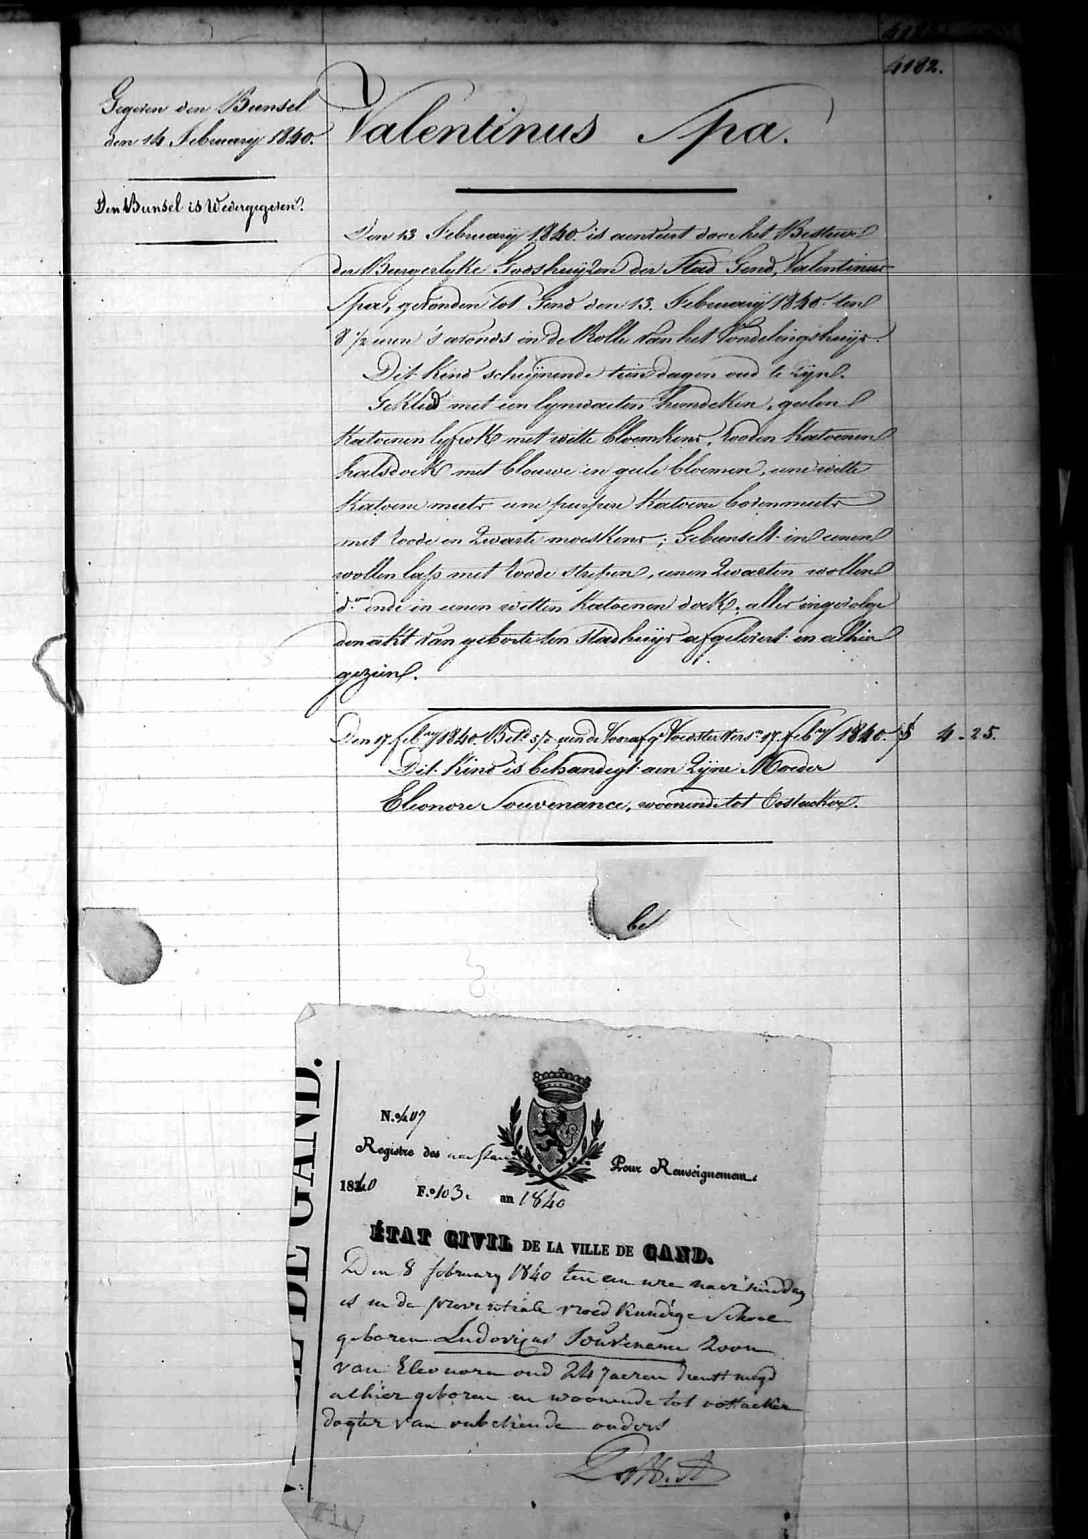 4182.
Gegeven den Bunsel
den 14 February 1840.
Den Bunsel is Wedergegeven.
Valentinus Spa.
Den 13 February 1840 is aenveert door het Bestuur
der Burgerlyke Godshuyzen der Stad Gend, Valentinus
Spa, gevonden tot Gend den 13. February 1840 ten
8 1/2 uren 's avonds in de Rolle van het Vondelingshuys.
Dit Kind schynende tien dagen oud te zyn.
Gekleed met een lynwaeten hemdeken, geelen
Katoenen lyfrok met witte bloemkens, rooden Katoenen
halsdoek met blauwe en geele bloemen, eene witte
Katoene muts eene purpere Katoene bovenmuts
met roode en zwarte moeskens; Gebunselt in eenen
wollen lap met roode strepen, eenen zwarten wollen
d.en ende in eenen witten Katoenen doek, alles ingevolge
den akt van geboorte ten Stadhuys afgelevert en alhier
gezien.
Den 17 feb.ry 1840. Bet.d aen de 17 feb.ry 1840. 4-25.
Dit Kind is behandigt aen zyne Moeder
Eleonore Souvenance, woonende tot Oostacker.
be
DE GAND.
N.o 407
Registre des naissan
Pour Renseignemens
1840 F.o 103 an 1840
ÉTAT CIVIL DE LA VILLE DE GAND.
Den 8 february 1840 ten een ure naermiddag
is in de provintiale vroedkundige Schole
geboren Ludovicus Souvenance Zoon
van Eleonore oud 24 Jaeren dienstmeyd
alhier geboren en woonende tot oostacker
dogter van onbekende ouders